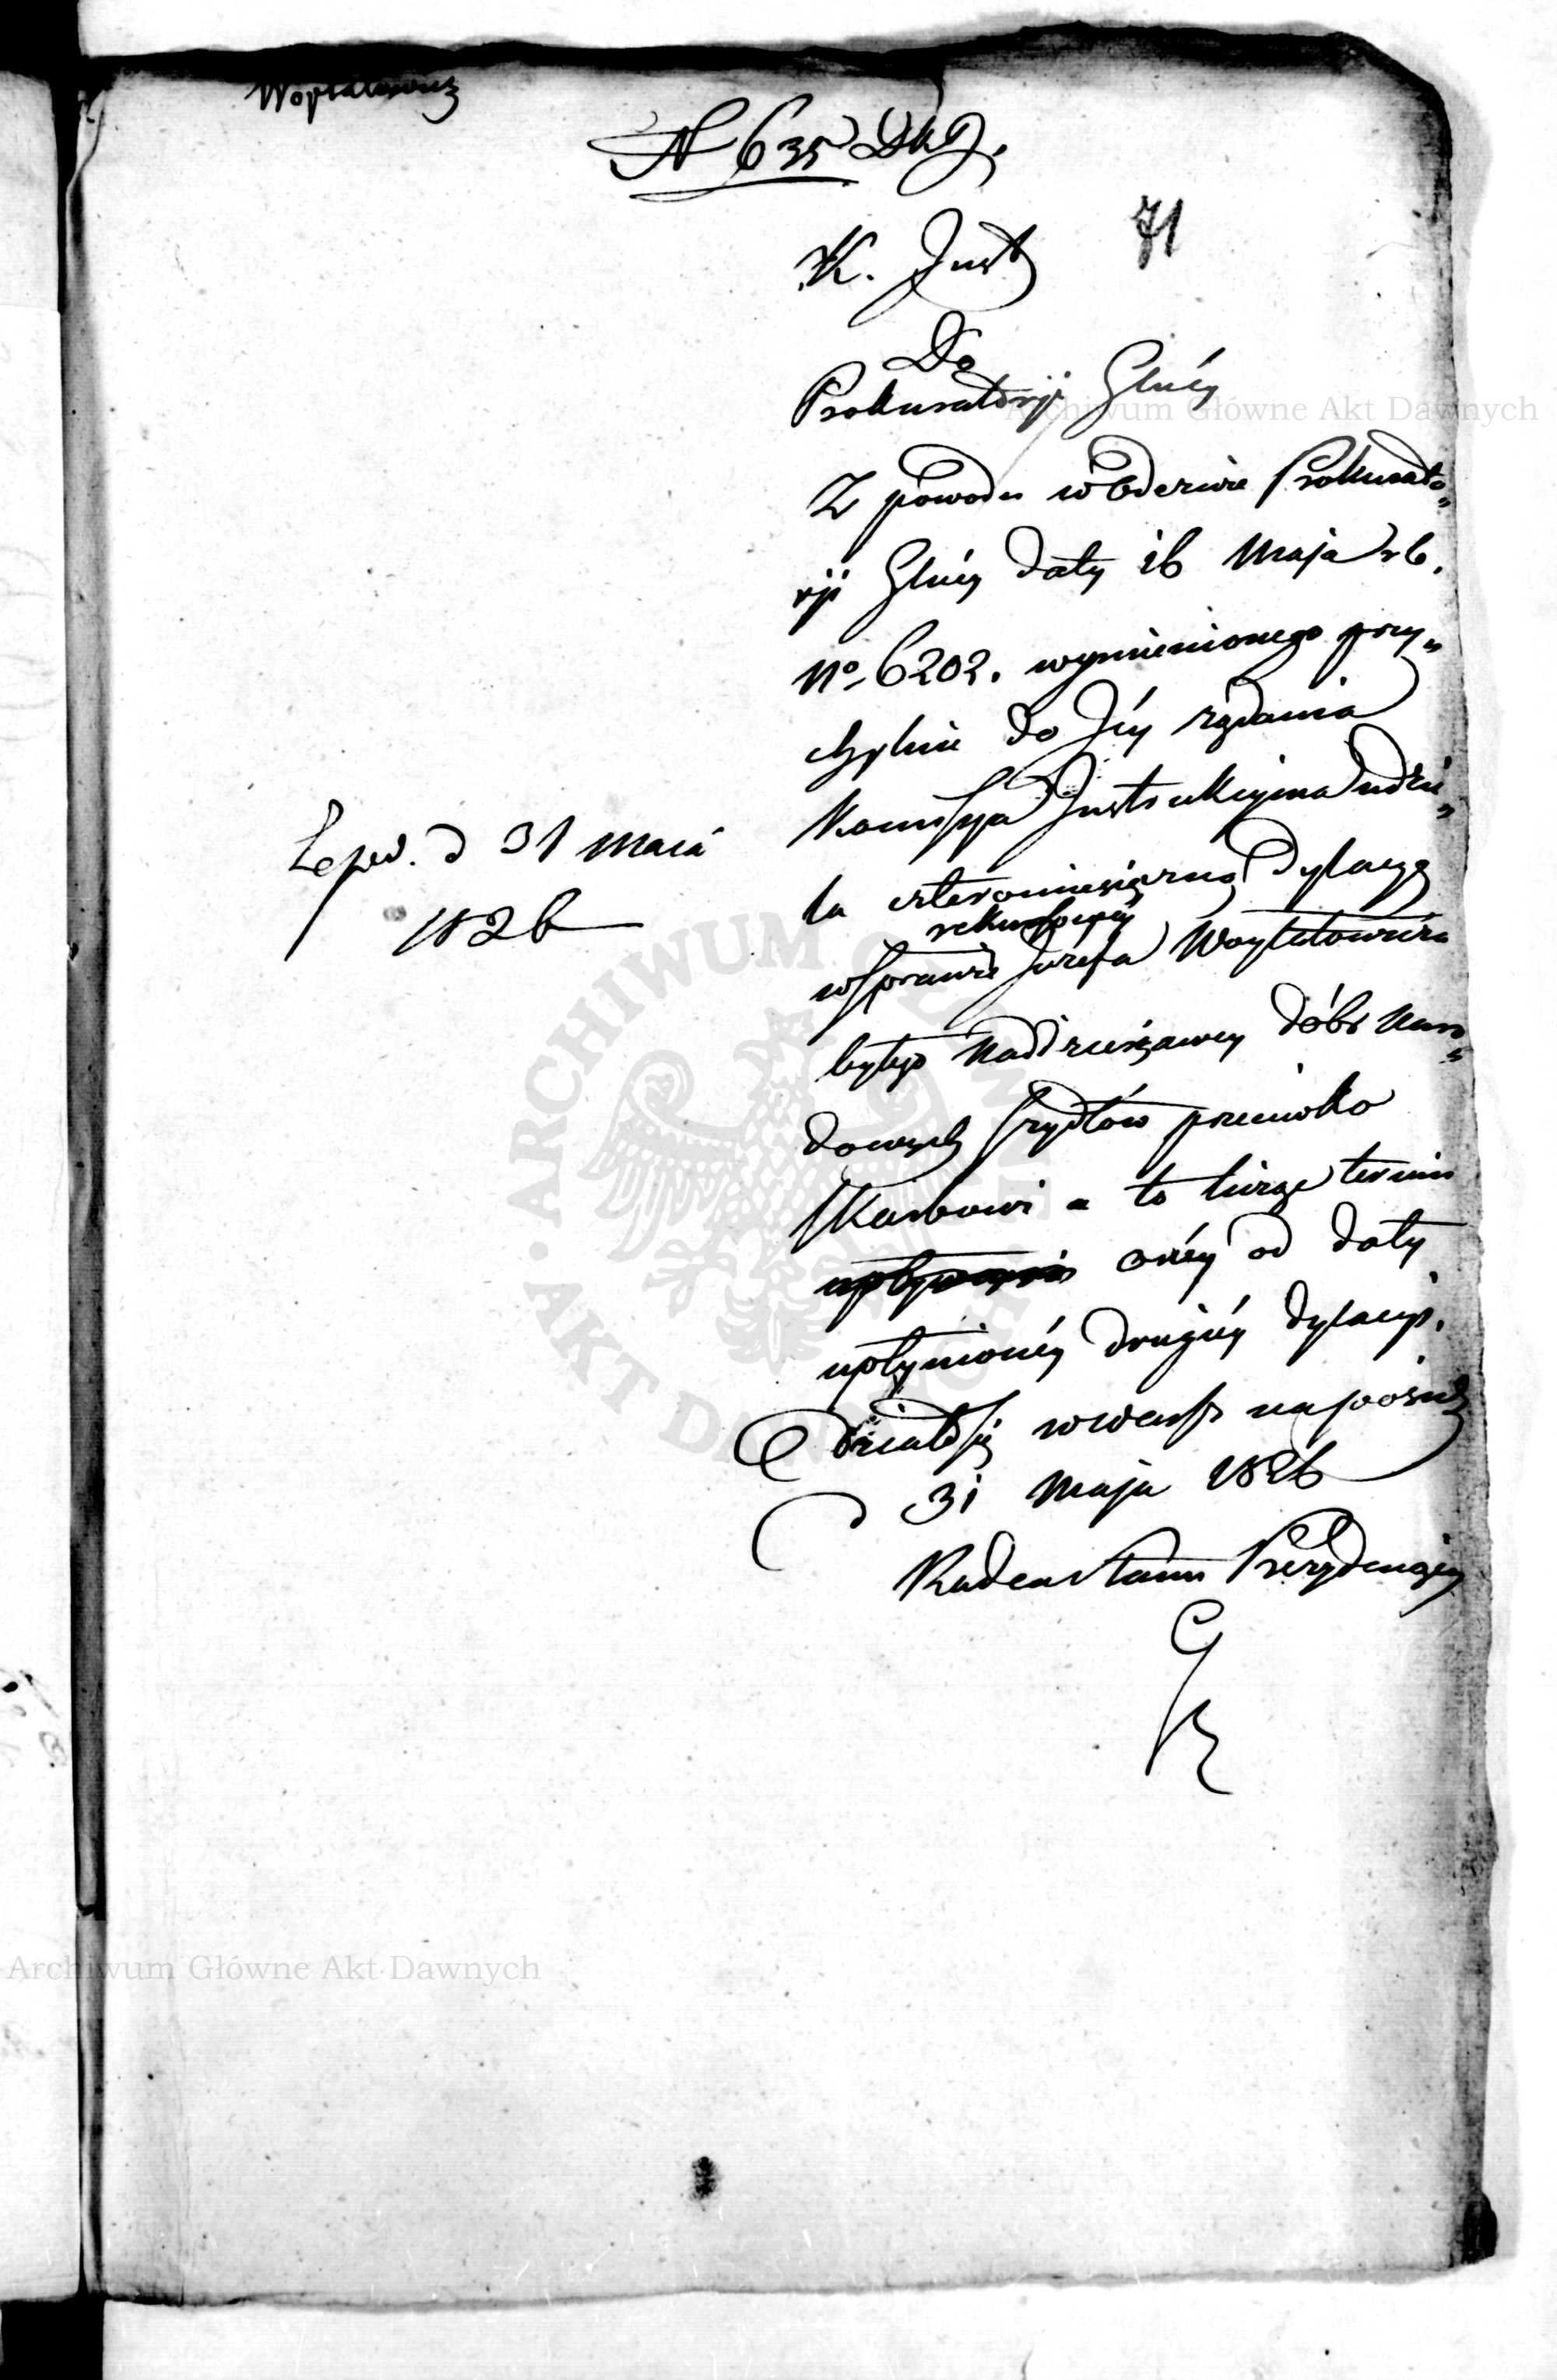 Woytatowicz
N 635 DKJ.
71
K. Just
Do
Prokuratorji Glnéy
Z powodu w Odezwie Prokurato„
rji Glnéy daty 16 Maja rb.
No 6202. wymienionego przy„
chylnie do Jéy rządania
Kommissya Instrukcyjna udzie„
la czteromiesięczną Dylacyą
rekursowéy
w sprawie Józefa Woytatowicza
byłego Naddzierżawcy dóbr Naro„
dowych Szydłów przeciwko
Skarbowi a to licząc termin
onéy od daty
upłynionéy drugiéy dylacyi.
Działo się w Warsz na posiedz
d 31 Maja 1826
Radca Stanu Prezydujący
Exped. d 31 Maia
1826
Archiwum Główne Akt Dawnych
ARCHIWUM GŁÓWNE AKT DAWNYCH
Archiwum Główne Akt Dawnych